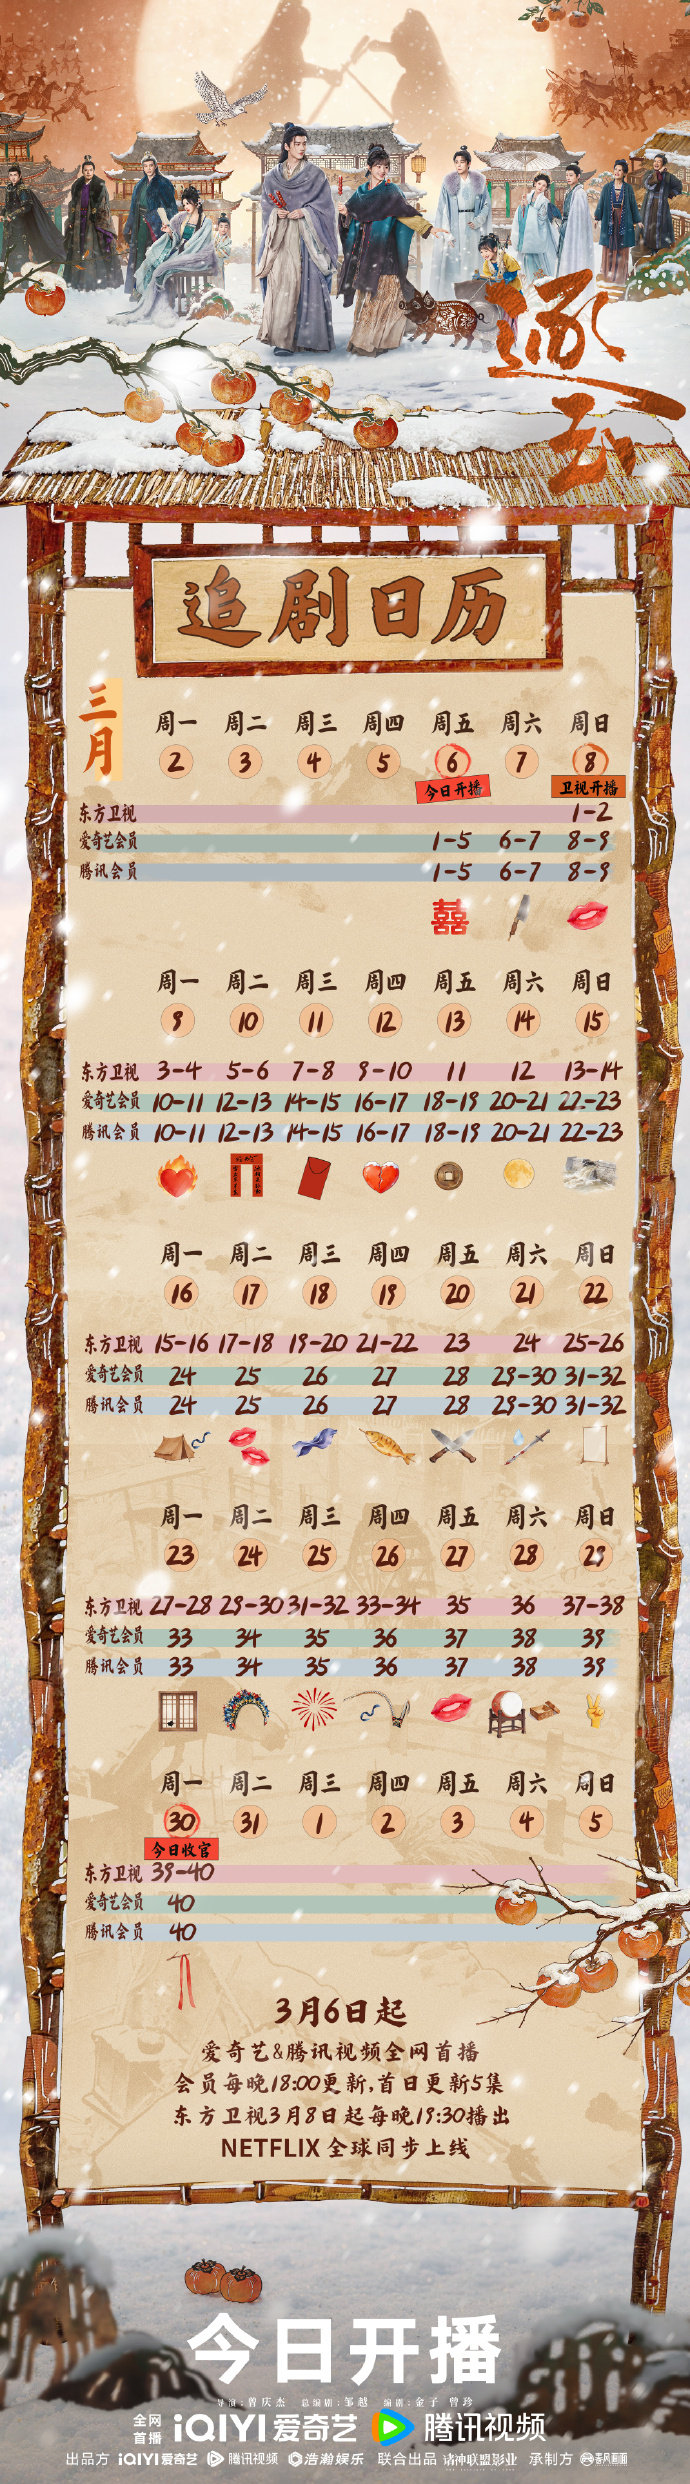 逐玉
追剧日历
三月
周一 周二 周三 周四 周五 周六 周日
2 3 4 5 6 7 8
今日开播 卫视开播
东方卫视 1-2
爱奇艺会员 1-5 6-7 8-9
腾讯会员 1-5 6-7 8-9
囍
周一 周二 周三 周四 周五 周六 周日
9 10 11 12 13 14 15
东方卫视 3-4 5-6 7-8 9-10 11 12 13-14
爱奇艺会员 10-11 12-13 14-15 16-17 18-19 20-21 22-23
腾讯会员 10-11 12-13 14-15 16-17 18-19 20-21 22-23
周一 周二 周三 周四 周五 周六 周日
16 17 18 19 20 21 22
东方卫视 15-16 17-18 19-20 21-22 23 24 25-26
爱奇艺会员 24 25 26 27 28 29-30 31-32
腾讯会员 24 25 26 27 28 29-30 31-32
周一 周二 周三 周四 周五 周六 周日
23 24 25 26 27 28 29
东方卫视 27-28 29-30 31-32 33-34 35 36 37-38
爱奇艺会员 33 34 35 36 37 38 39
腾讯会员 33 34 35 36 37 38 39
周一 周二 周三 周四 周五 周六 周日
30 31 1 2 3 4 5
今日收官
东方卫视 39-40
爱奇艺会员 40
腾讯会员 40
3月6日起
爱奇艺&腾讯视频全网首播
会员每晚18:00更新,首日更新5集
东方卫视3月8日起每晚19:30播出
NETFLIX 全球同步上线
今日开播
导演:曾庆杰 总编剧:邹越 编剧:金子 曾珍
全网首播 iQIYI爱奇艺 腾讯视频
出品方 iQIYI爱奇艺 腾讯视频 浩瀚娱乐 联合出品 诸神联盟影业 承制方